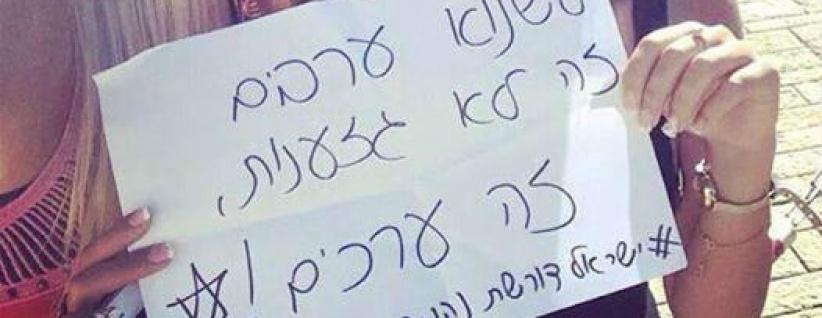 לשנוא
ערבים
זה לא
גזענות,
זה ערכים!
#ישראל דורשת